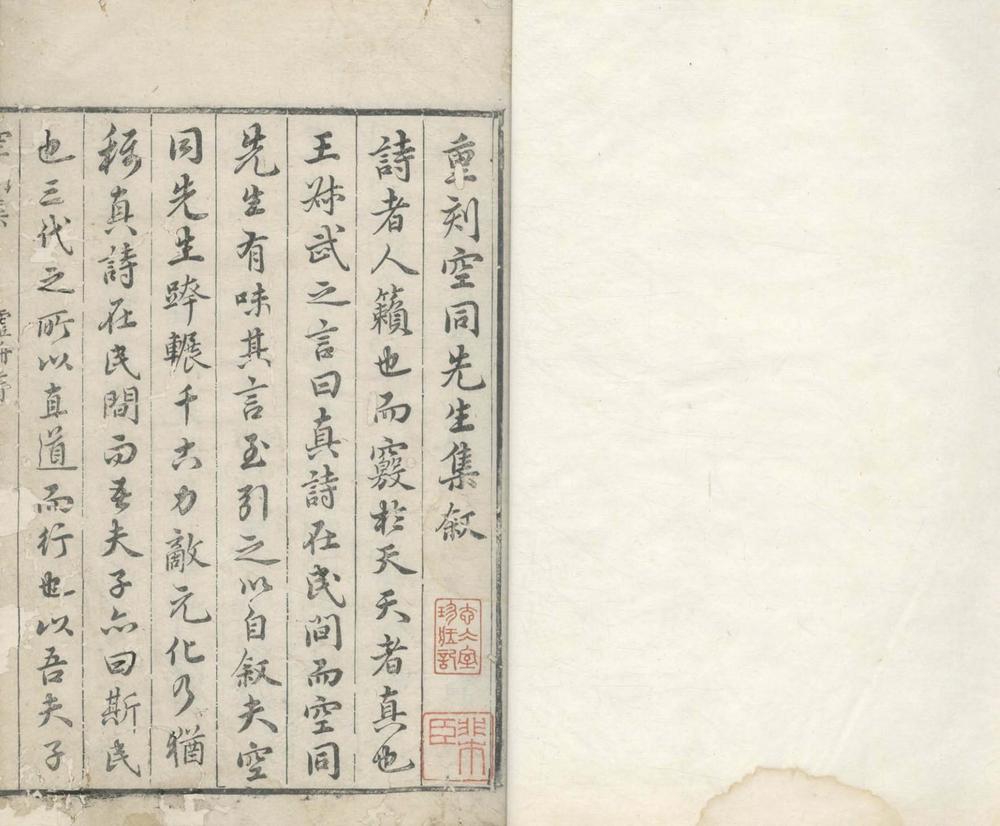 重刻空同先生集叙
詩者人籟也而竅於天天者真也
王叔武之言曰真詩在民间而空同
先生有味其言至引之以自叙夫空
同先生跨輾千古力敵元化乃猶
稱真詩在民間而吾夫子亦曰斯民
也三代之所以直道而行也以吾夫子